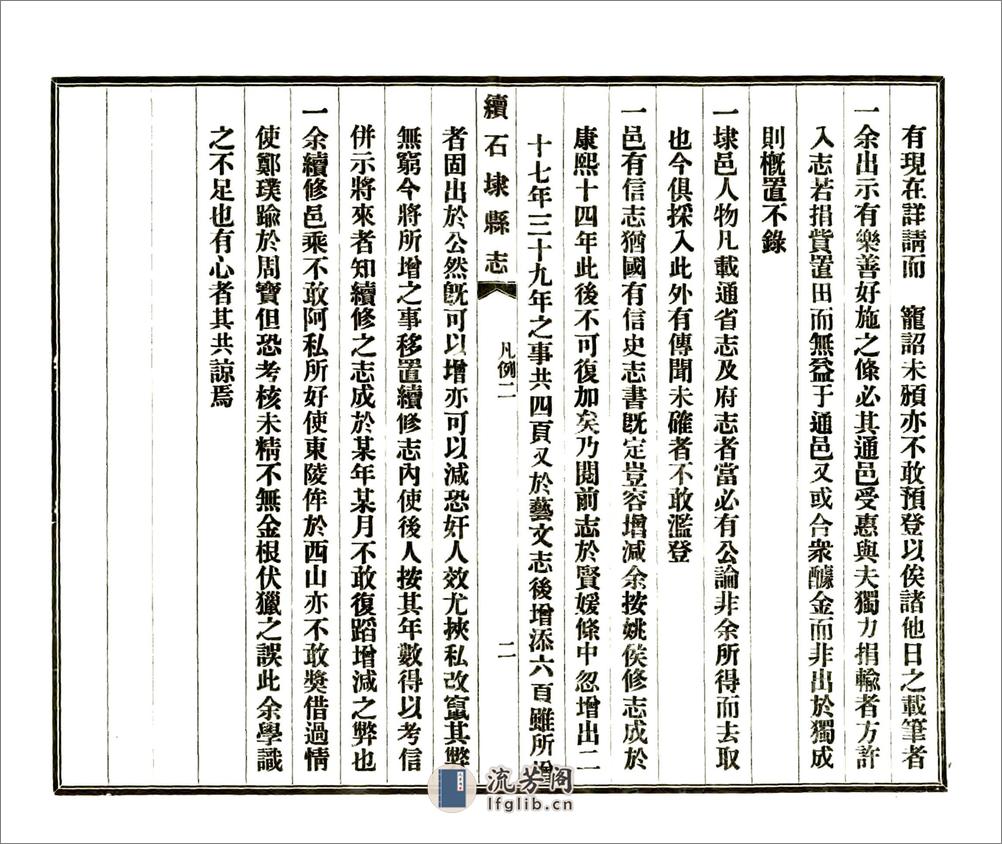 有現在詳請而　寵詔未頒亦不敢預登以俟諸他日之載筆者
一余出示有樂善好施之條必其通邑受惠與夫獨力捐輸者方許
入志若捐貲置田而無益于通邑又或合衆醵金而非出於獨成
則槪置不錄
一埭邑人物凡載通省志及府志者當必有公論非余所得而去取
也今俱採入此外有傳聞未確者不敢濫登
一邑有信志猶國有信史志書旣定豈容增減余按姚侯修志成於
康熙十四年此後不可復加矣乃閱前志於賢媛條中忽增出二
十七年三十九年之事共四頁又於藝文志後增添六頁雖所增
續石埭縣志
凡例二
二
者固出於公然旣可以增亦可以減恐奸人效尤挾私改竄其弊
無窮今將所增之事移置續修志內使後人按其年數得以考信
併示將來者知續修之志成於某年某月不敢復蹈增減之弊也
一余續修邑乘不敢阿私所好使東陵侔於西山亦不敢奬借過情
使鄭璞踰於周寶但恐考核未精不無金根伏獵之誤此余學識
之不足也有心者其共諒焉
流芳阁
lfglib.cn